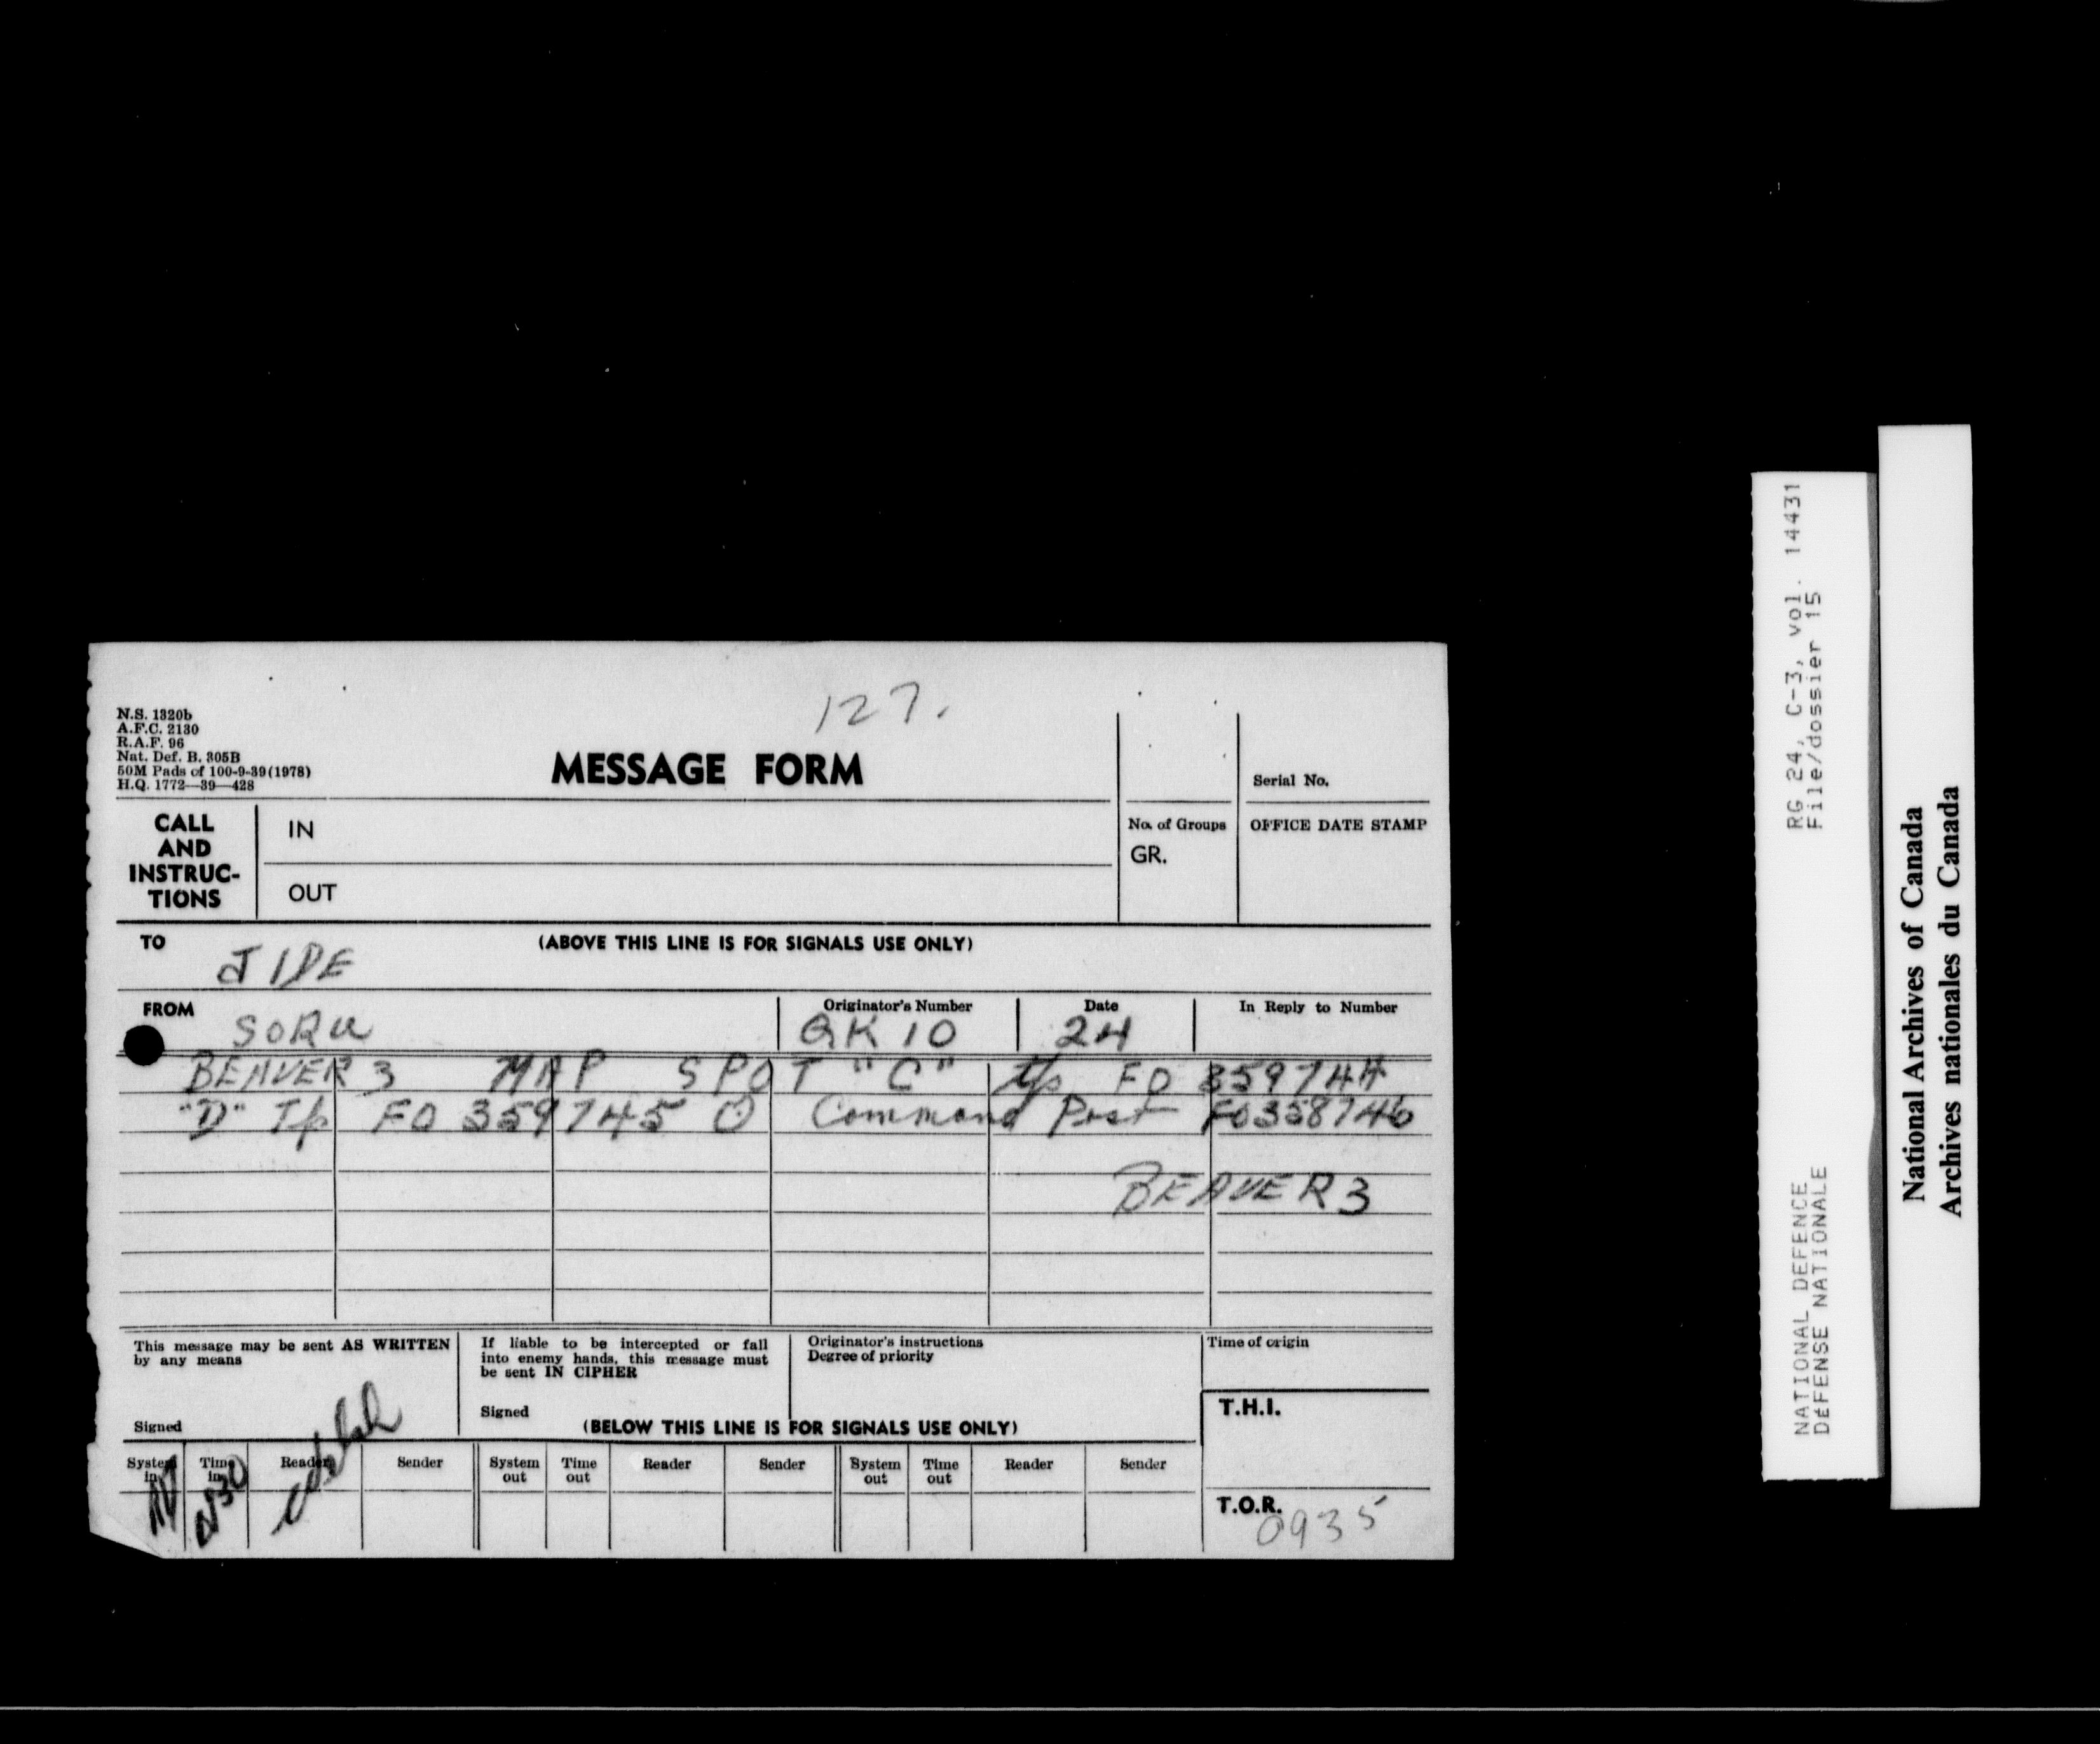 127.
N.S. 1320b
A.F.C. 2130
R.A.F. 96
Nat. Def. B. 305B
50M Pads of 100-9-39 (1978)
H.Q. 1772—39—428
MESSAGE FORM
Serial No.
CALL AND INSTRUC-TIONS
IN
OUT
No. of Groups
GR.
OFFICE DATE STAMP
TO JIDE
(ABOVE THIS LINE IS FOR SIGNALS USE ONLY)
FROM SORU
Originator's Number GK 10
Date 24
In Reply to Number
BEAVER 3 MAP SPOT "C" Tp FO 359744
"D" Tp FO 359745 O Command Post FO358746
BEAVER 3
This message may be sent AS WRITTEN
by any means
Signed
If liable to be intercepted or fall
into enemy hands, this message must
be sent IN CIPHER
Signed
Originator's instructions
Degree of priority
Time of origin
T.H.I.
(BELOW THIS LINE IS FOR SIGNALS USE ONLY)
System in Time in Reader Sender System out Time out Reader Sender System out Time out Reader Sender
0930
T.O.R. 0935
RG 24, C-3, vol. 14431
File/dossier 15
NATIONAL DEFENCE
DÉFENSE NATIONALE
National Archives of Canada
Archives nationales du Canada